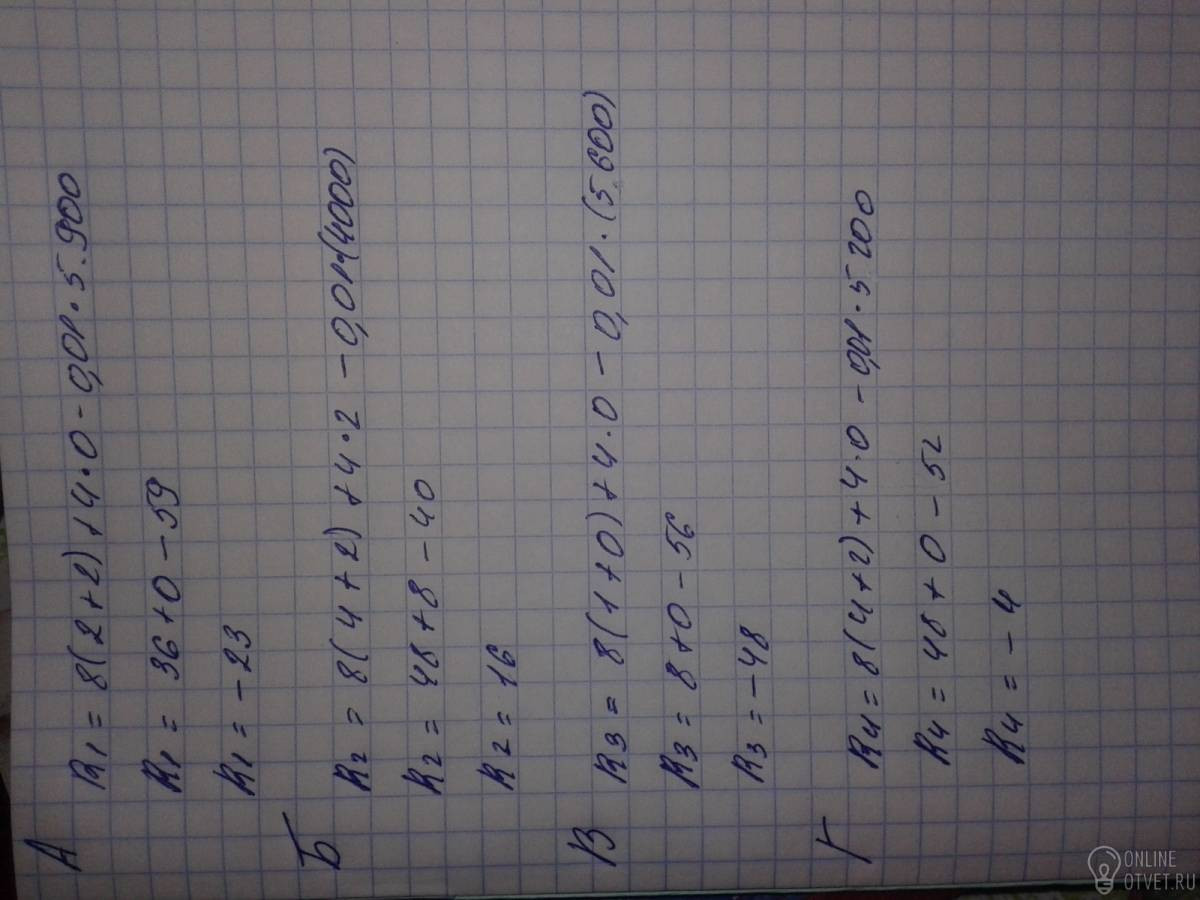 А
R1 = 8(2+2)+4·0-0,01·5.900
R1 = 36+0-59
R1 = -23
Б
R2 = 8(4+2)+4·2-0,01·(4000)
R2 = 48+8-40
R2 = 16
В
R3 = 8(1+0)+4·0-0,01·(5600)
R3 = 8+0-56
R3 = -48
Г
R4 = 8(4+2)+4·0-0,01·5200
R4 = 48+0-52
R4 = -4
ONLINE
OTVET.RU